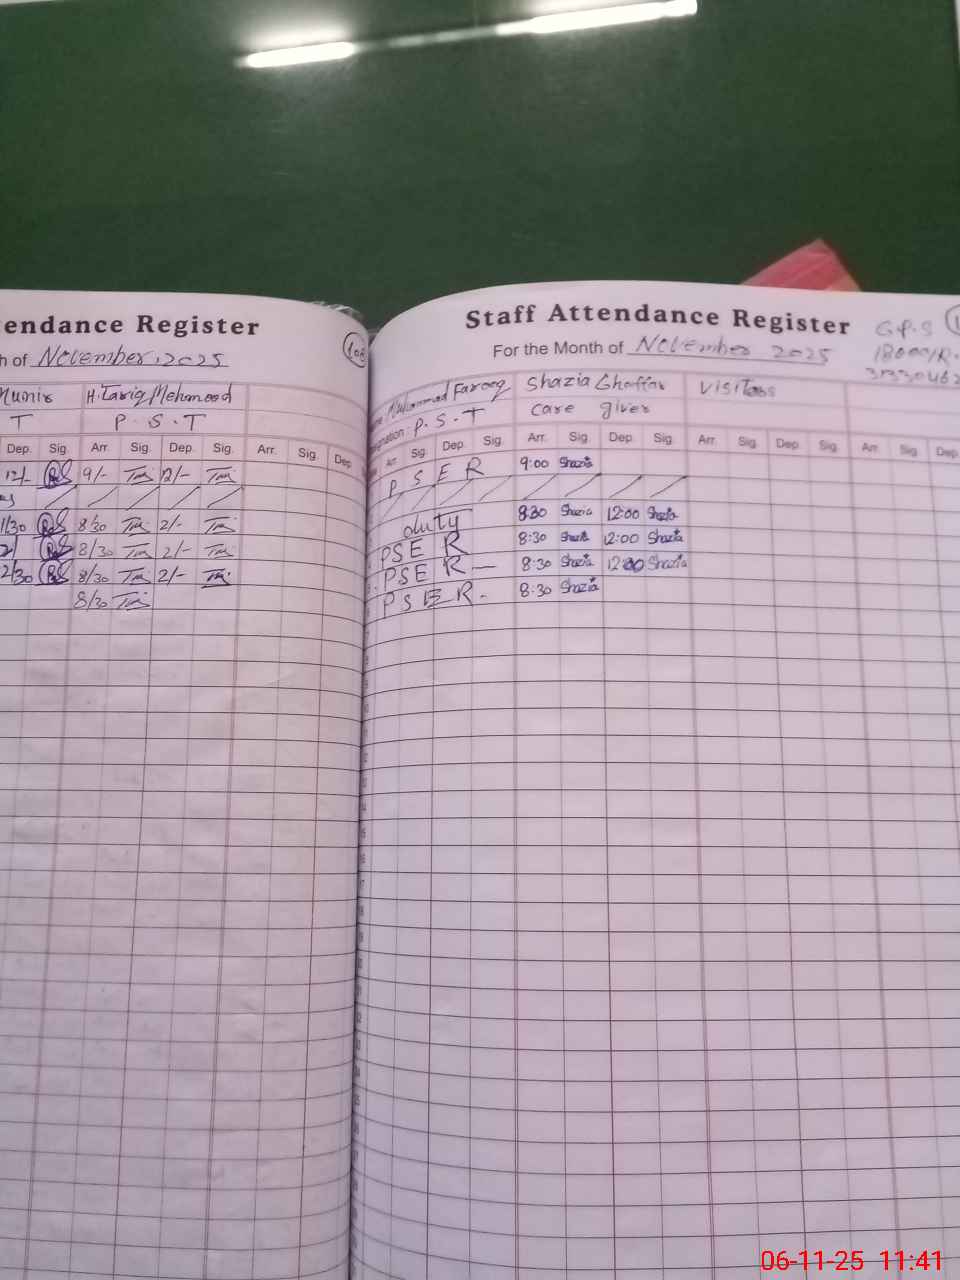 tendance Register
h of November, 2025
108
Munir H. Tariq Mehmood
T P.S.T
Dep. Sig. Arr. Sig. Dep. Sig. Arr. Sig. Dep
12/- 9/- 12/-
1/30 8/30 2/-
2/ 8/30 2/-
2/30 8/30 2/-
8/30
Staff Attendance Register
For the Month of November 2025
G.P.S
Muhammad Farooq Shazia Ghaffar Visitors
Designation: P.S.T Care giver
Arr. Sig. Dep. Sig. Arr. Sig. Dep. Sig. Arr. Sig. Dep. Sig. Arr. Sig. Dep.
P S E R 9:00 Shazia
duty 8:30 Shazia 12:00 Shazia
PSE R 8:30 Shazia 12:00 Shazia
PSE R — 8:30 Shazia 12:00 Shazia
PSE R - 8:30 Shazia
06-11-25 11:41